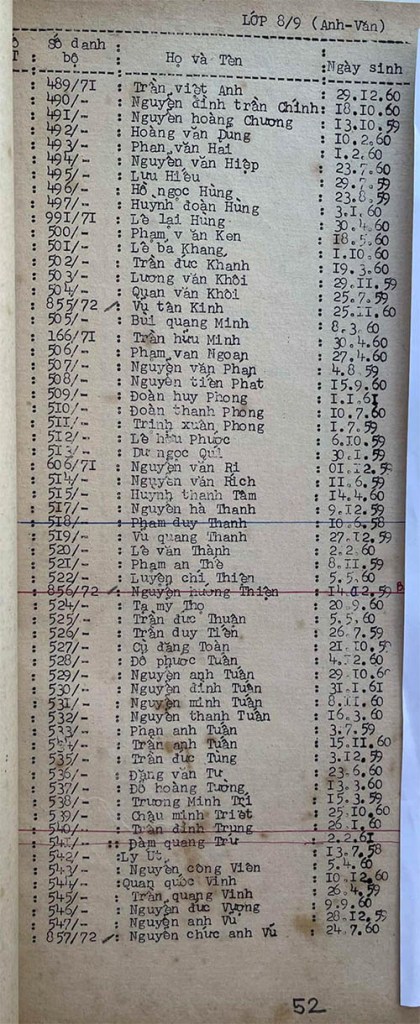 LỚP 8/9 (Anh-Văn)
Số danh bộ : Họ và Tên : Ngày sinh
489/71 : Trần việt Anh : 29.12.60
490/- : Nguyễn đình trần Chinh : 18.10.60
491/- : Nguyễn hoàng Chương : 13.10.59
492/- : Hoàng văn Dũng : 10.2.60
493/- : Phan văn Hai : 1.2.60
494/- : Nguyễn văn Hiệp : 23.7.60
495/- : Lưu Hiếu : 29.7.59
496/- : Hồ ngọc Hùng : 23.8.59
497/- : Huỳnh đoàn Hùng : 3.1.60
991/71 : Lê lai Hùng : 30.4.60
500/- : Phạm văn Ken : 18.5.60
501/- : Lê bá Khang : 1.10.60
502/- : Trần đức Khanh : 19.3.60
503/- : Lương văn Khôi : 29.11.59
504/- : Quan văn Khôi : 25.7.59
855/72 : Vũ tân Kinh : 25.11.60
505/- : Bùi quang Minh : 8.3.60
166/71 : Trần hữu Minh : 30.4.60
506/- : Phạm văn Ngoạn : 27.4.60
507/- : Nguyễn văn Phan : 4.8.59
508/- : Nguyễn tiến Phát : 15.9.60
509/- : Đoàn huy Phong : 1.1.61
510/- : Đoàn thanh Phong : 10.7.60
511/- : Trịnh xuân Phong : 1.7.59
512/- : Lê hữu Phước : 6.10.59
513/- : Dư ngọc Quí : 30.1.59
606/71 : Nguyễn văn Ri : 01.12.59
514/- : Nguyễn văn Rich : 11.6.59
515/- : Huỳnh thanh Tâm : 14.4.60
517/- : Nguyễn hà Thanh : 9.12.59
518/- : Phạm duy Thanh : 10.6.58
519/- : Vũ quang Thanh : 27.12.59
520/- : Lê văn Thành : 2.2.60
521/- : Phạm an Thê : 8.11.59
522/- : Luyện chí Thiện : 5.5.60
856/72 : Nguyễn hương Thiện : 14.12.59 B
524/- : Tạ my Thọ : 20.9.60
525/- : Trần đức Thuận : 5.5.60
526/- : Trần duy Tiến : 26.7.59
527/- : Cù đăng Toàn : 21.10.59
528/- : Đỗ phước Tuấn : 4.12.60
529/- : Nguyễn anh Tuấn : 29.10.60
530/- : Nguyễn đình Tuấn : 31.1.61
531/- : Nguyễn minh Tuấn : 8.11.60
532/- : Nguyễn thanh Tuấn : 16.3.60
533/- : Phan anh Tuấn : 3.7.59
534/- : Trần anh Tuấn : 15.11.60
535/- : Trần đức Tùng : 3.12.59
536/- : Đặng văn Tư : 23.6.60
537/- : Đỗ hoàng Tường : 13.3.60
538/- : Trương Minh Trí : 15.3.59
539/- : Châu minh Triết : 25.10.60
540/- : Trần đình Trung : 26.1.60
541/- : Đàm quang Trứ : 2.2.61
542/- : Ly Út : 13.7.58
543/- : Nguyễn công Viên : 5.4.60
544/- : Quan quốc Vinh : 10.12.60
545/- : Trần quang Vinh : 26.4.59
546/- : Nguyễn đức Vượng : 9.9.60
547/- : Nguyễn anh Vũ : 28.12.59
857/72 : Nguyễn chức anh Vũ : 24.7.60
52